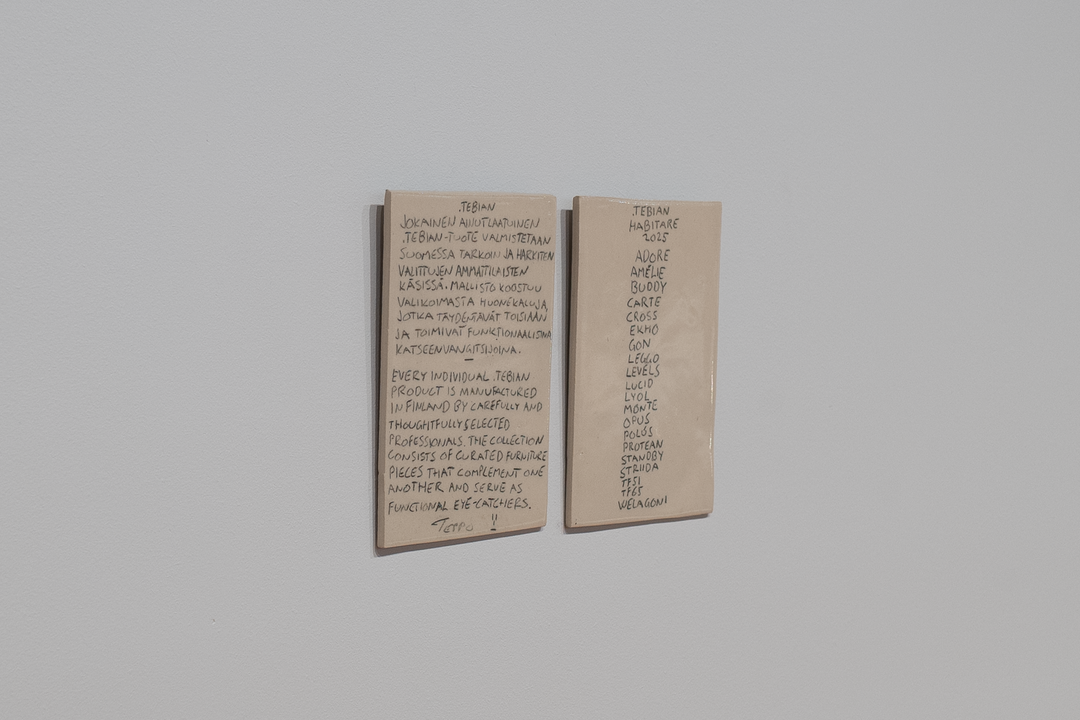 .TEBIAN
JOKAINEN AINUTLAATUINEN
.TEBIAN-TUOTE VALMISTETAAN
SUOMESSA TARKOIN JA HARKITEN
VALITTUJEN AMMATTILAISTEN
KÄSISSÄ. MALLISTO KOOSTUU
VALIKOIMASTA HUONEKALUJA,
JOTKA TÄYDENTÄVÄT TOISIAAN
JA TOIMIVAT FUNKTIONAALISINA
KATSEENVANGITSIJOINA.
—
EVERY INDIVIDUAL .TEBIAN
PRODUCT IS MANUFACTURED
IN FINLAND BY CAREFULLY AND
THOUGHTFULLY SELECTED
PROFESSIONALS. THE COLLECTION
CONSISTS OF CURATED FURNITURE
PIECES THAT COMPLEMENT ONE
ANOTHER AND SERVE AS
FUNCTIONAL EYE-CATCHERS.
TEPPO !!
.TEBIAN
HABITARE
2025
ADORE
AMÉLIE
BUDDY
CARTE
CROSS
EKHO
GON
LEGGO
LEVELS
LUCID
LYOL
MONTE
OPUS
POLOS
PROTEAN
STANDBY
STRIIDA
TF51
TF65
WELAGONI